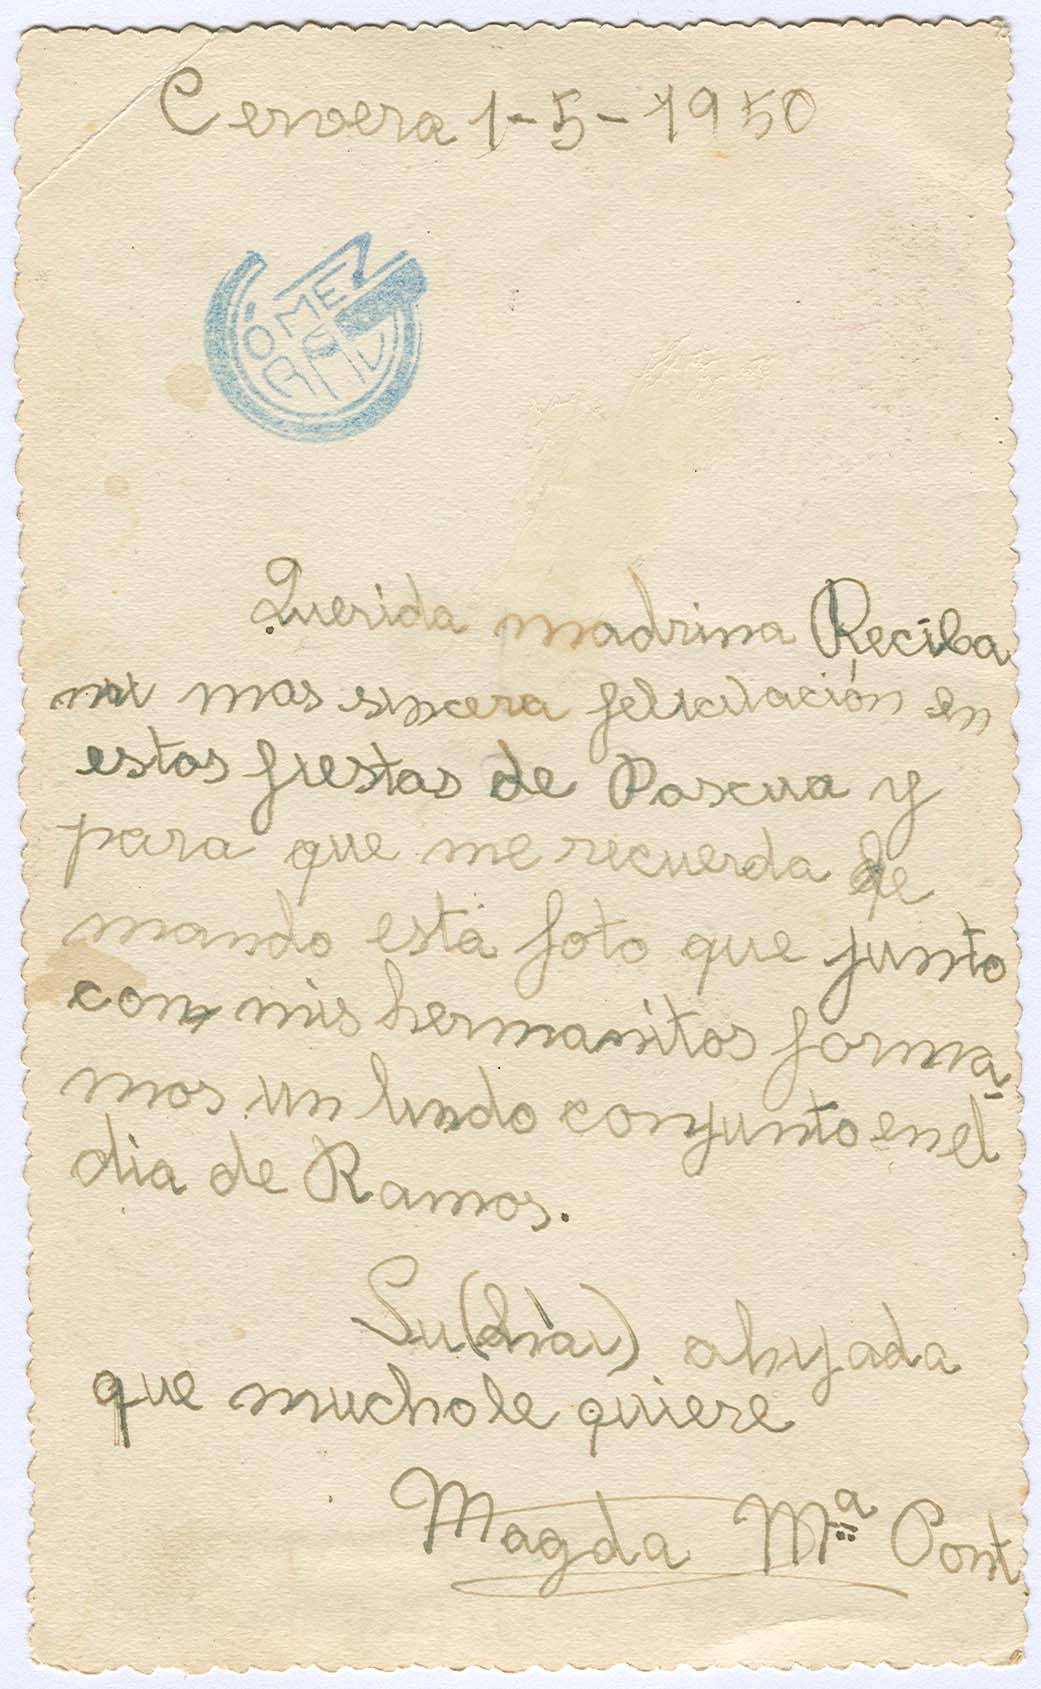 Cervera 1-5-1950
GÓMEZ
GRAU
Querida madrina Reciba
mi mas sincera felicitación en
estas fiestas de Pascua y
para que me recuerda le
mando esta foto que junto
con mis hermanitos forma-
mos un lindo conjunto en el
dia de Ramos.
Su ahijada
que mucho le quiere
Magda Mª Pont